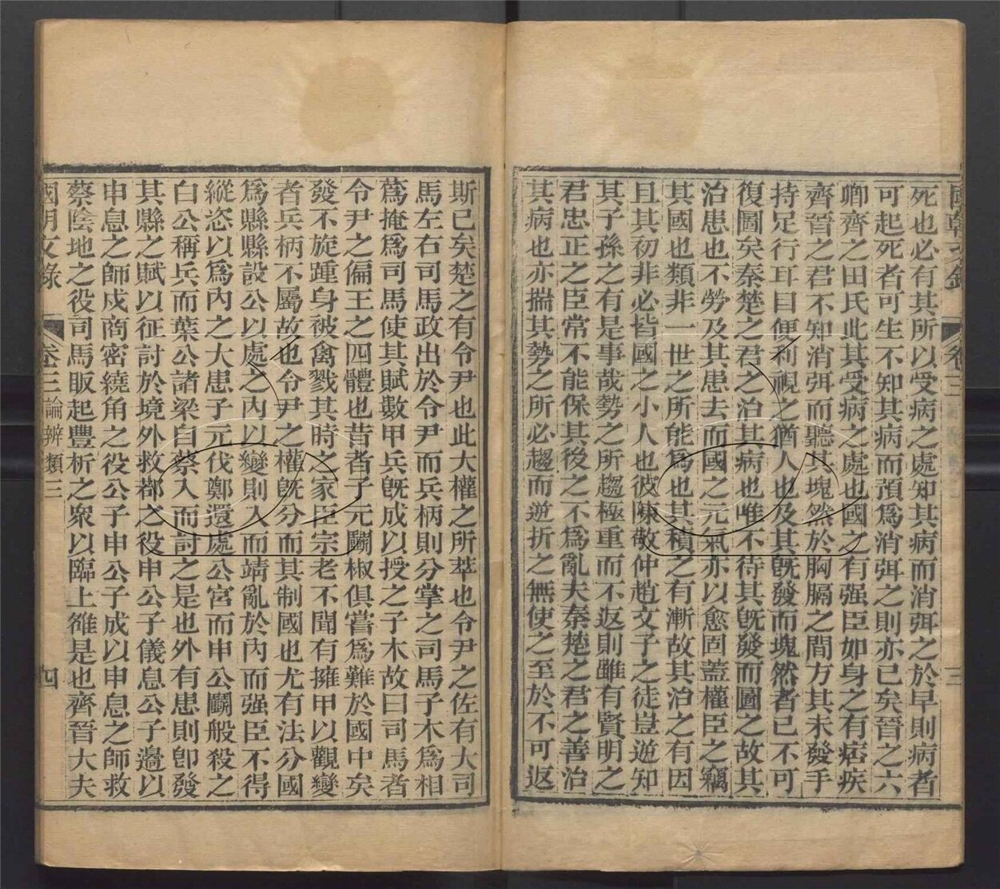 國朝文錄 卷三 三
死也必有其所以受病之處知其病而消弭之於早則病者
可起死者可生不知其病而預爲消弭之則亦已矣晉之六
卿齊之田氏此其受病之處也國之有强臣如身之有痞疾
齊晉之君不知消弭而聽其塊然於胸膈之間方其未發手
持足行耳目便利視之猶人也及其旣發而塊然者已不可
復圖矣秦楚之君之治其病也唯不待其旣發而圖之故其
治患也不勞及其患去而國之元氣亦以愈固蓋權臣之竊
其國也類非一世之所能爲也其積之有漸故其治之有因
且其初非必皆國之小人也彼陳敬仲趙文子之徒豈逆知
其子孫之有是事哉勢之所趨極重而不返則雖有賢明之
君忠正之臣常不能保其後之不爲亂夫秦楚之君之善治
其病也亦揣其勢之所必趨而逆折之無使之至於不可返
斯已矣楚之有令尹也此大權之所萃也令尹之佐有大司
馬左右司馬政出於令尹而兵柄則分掌之司馬子木爲相
蒍掩爲司馬使其賦數甲兵旣成以授之子木故曰司馬者
令尹之偏王之四體也昔者子元鬭椒俱嘗爲難於國中矣
發不旋踵身被禽戮其時之家臣宗老不聞有擁甲以觀變
者兵柄不屬故也令尹之權旣分而其制國也尤有法分國
爲縣縣設公以處之內以變則入而靖亂於內而强臣不得
縱恣以爲內之大患子元伐鄭還處公宮而申公鬭般殺之
白公稱兵而葉公諸梁自蔡入而討之是也外有患則卽發
其縣之賦以征討於境外救鄀之役申公子儀息公子邊以
申息之師戍商密繞角之役公子申公子成以申息之師救
蔡陰地之役司馬販起豐析之衆以臨上雒是也齊晉大夫
國朝文錄 卷三 論辨類三 四